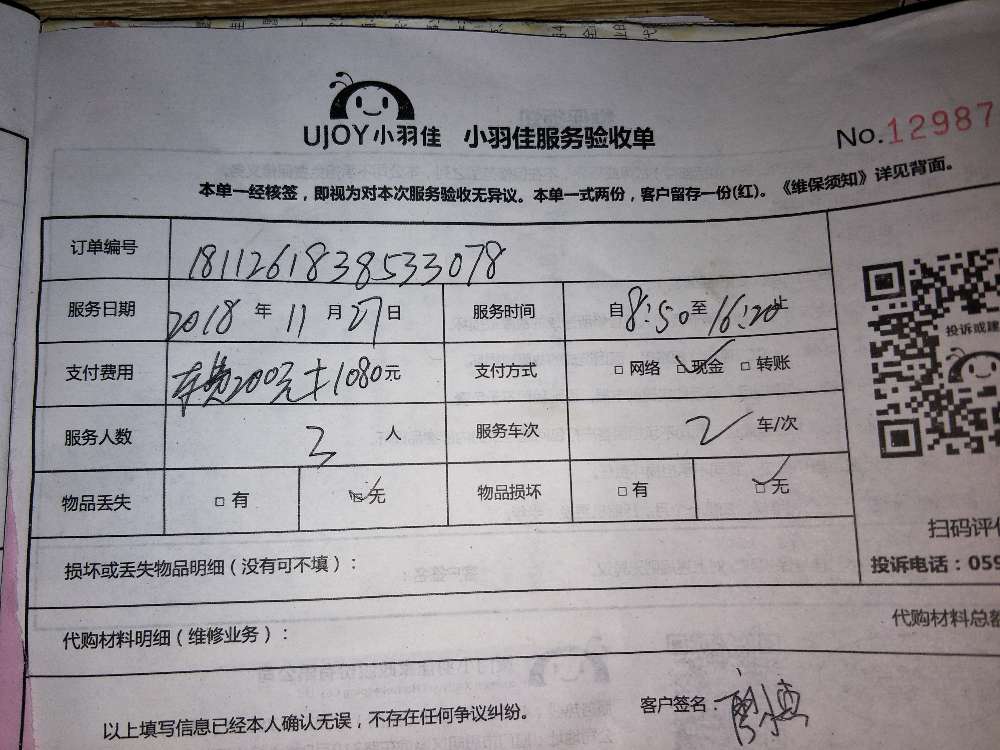 UJOY小羽佳 小羽佳服务验收单
No.12987
本单一经核签，即视为对本次服务验收无异议。本单一式两份，客户留存一份(红)。《维保须知》详见背面。
订单编号 1811261838533078
服务日期 2018 年 11 月 27 日 服务时间 自 8:50 至 16:20 止
支付费用 车费200元+1080元 支付方式 □ 网络 □ 现金 □ 转账
服务人数 3 人 服务车次 2 车/次
物品丢失 □ 有 □ 无 物品损坏 □ 有 □ 无
投诉或建
扫码评
投诉电话：059
损坏或丢失物品明细（没有可不填）：
代购材料明细（维修业务）： 代购材料总额
以上填写信息已经本人确认无误，不存在任何争议纠纷。 客户签名：